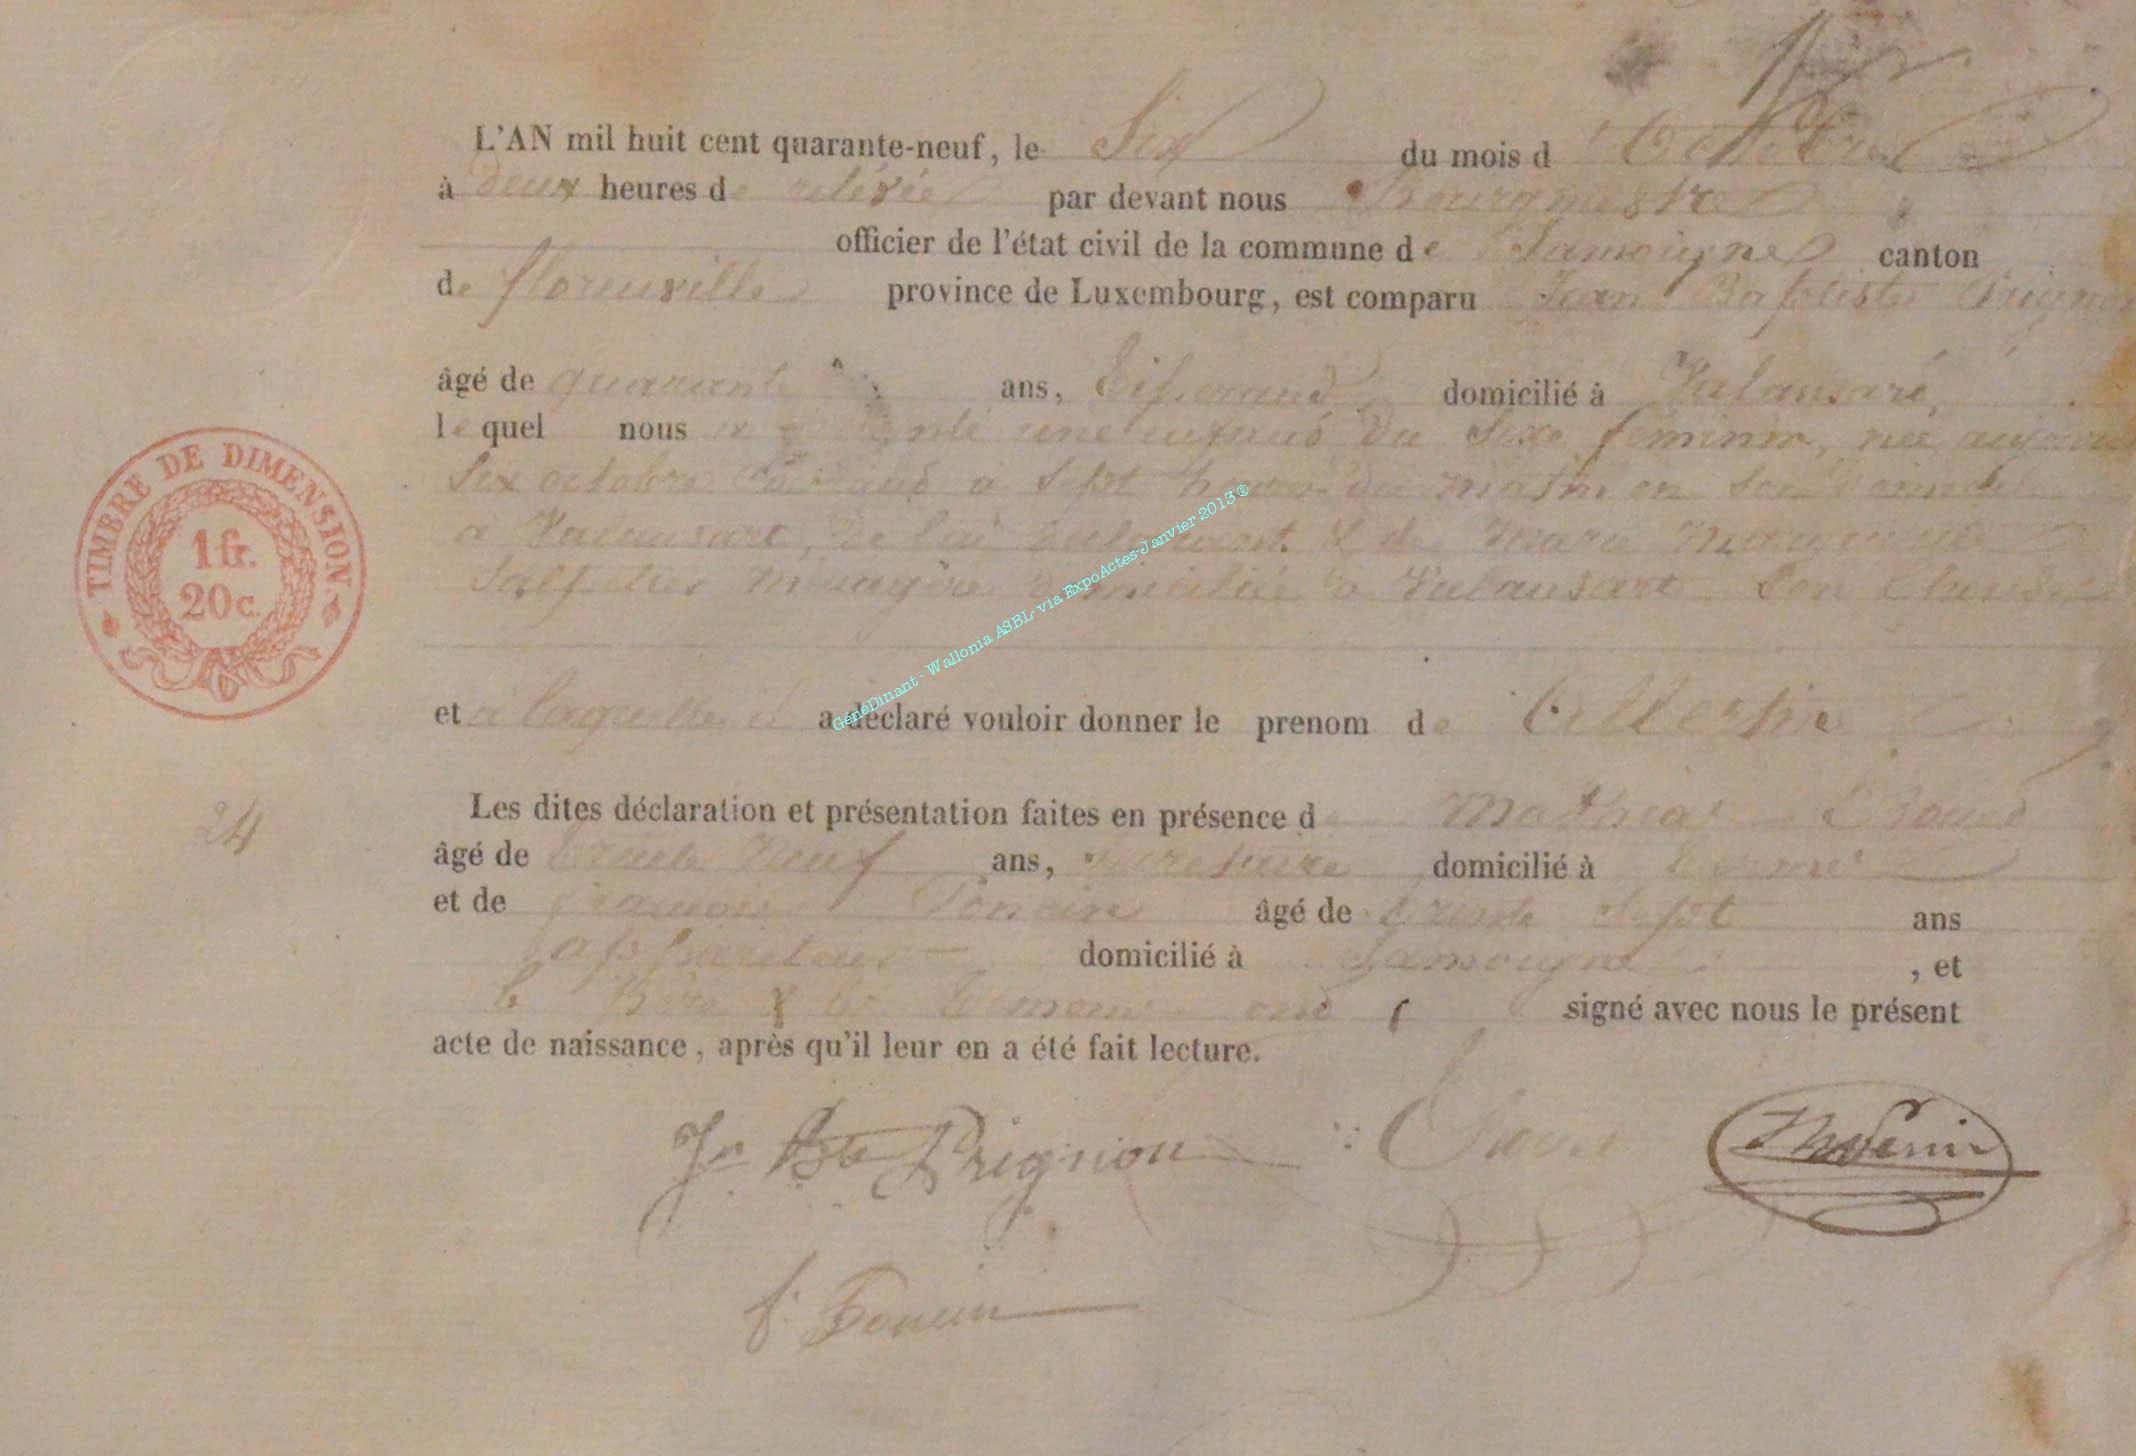 L'AN mil huit cent quarante-neuf, le Six du mois d'Octobre
à deux heures de relevée par devant nous Bourgmestre
officier de l'état civil de la commune de Jamoigne canton
de florenville province de Luxembourg, est comparu Jean Baptiste Prignon
âgé de quarante ans, Tisserand domicilié à Valansart,
le quel nous a présenté une enfant du Sexe féminin, née aujourd'hui
Six octobre courant à Sept heures du matin en son domicile
a Valansart, de lui déclarant & de Marie Marguerite
ménagère domiciliée à Valansart Son
et à laquelle il a déclaré vouloir donner le prenom de
24
Les dites déclaration et présentation faites en présence d Mathias
âgé de trente neuf ans, secretaire domicilié à
et de francois Poncin âgé de trente Sept ans
domicilié à Jamoigne, et
le Père & les temoins ont signé avec nous le présent
acte de naissance, après qu'il leur en a été fait lecture.
Jn Bte Prignon
f. Poncin
TIMBRE DE DIMENSION.
1 fr.
20 c.
GénéDinant - Wallonia ASBL- via ExpoActes-Janvier 2013®